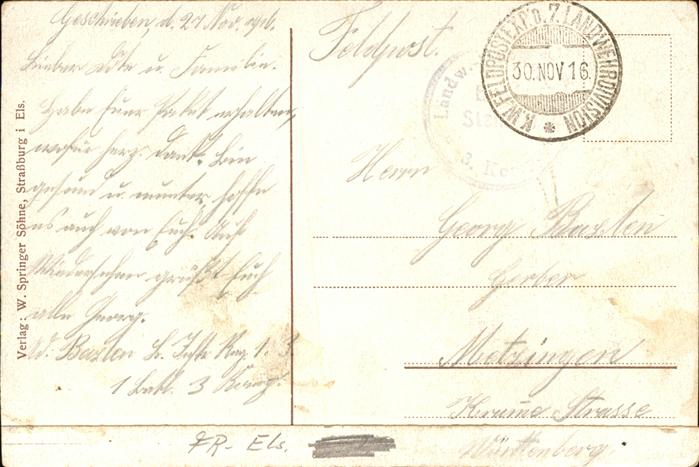 Geschrieben, d. 27 Nov. 1916.
Lieber u. Familie.
Habe Euer Paket erhalten,
wofür herz. Dank. Bin
gesund u. munter, hoffe
es auch von Euch. Auf
Wiedersehen grüßt Euch
alle Georg.
Ad: Basten L. Inftr. Reg. 1. 3
1 Batl. 3 Komp.
Verlag: W. Springer Söhne, Straßburg i Els.
Feldpost.
Landw.
3. Ko
K.W. FELDPOSTEXP. D. 7. LANDWEHRDIVISION
30. NOV 16.
Herrn
Georg Basten
Gerber
Metzingen
Strasse
Württemberg.
FR- Els.